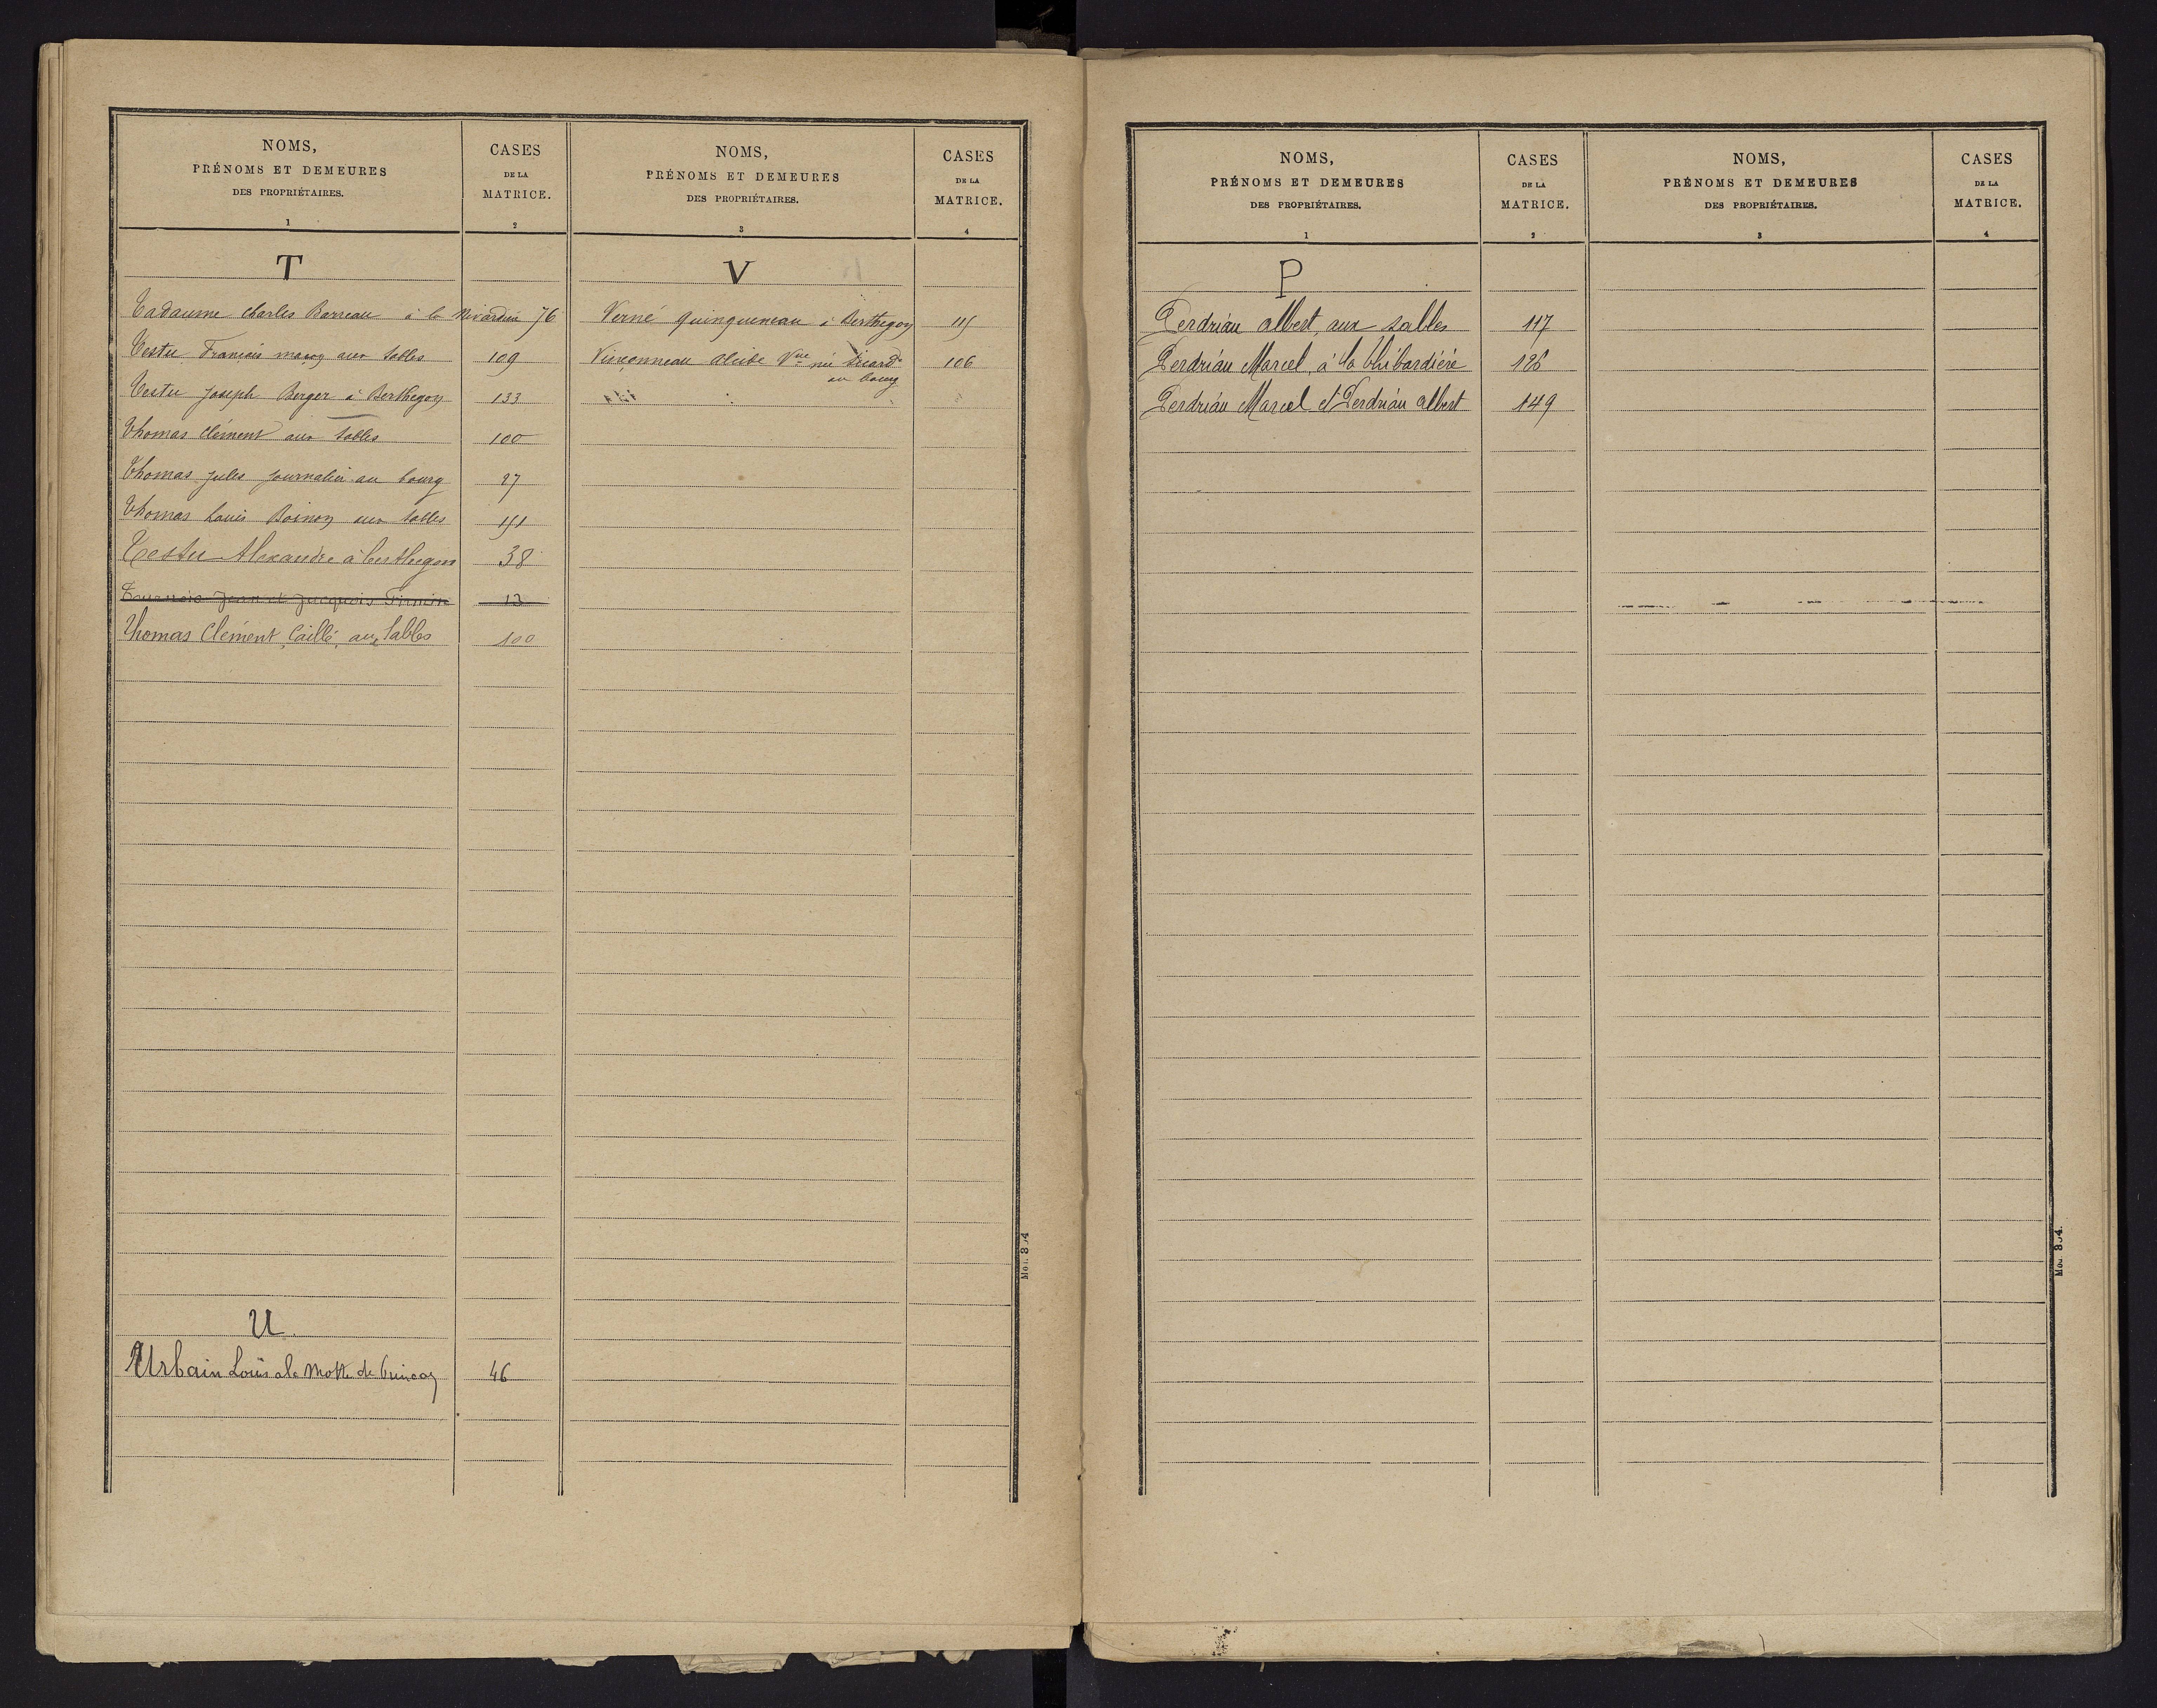 NOMS,
PRÉNOMS ET DEMEURES
DES PROPRIÉTAIRES.
1
CASES
DE LA
MATRICE.
2
T
Tadaume Charles Barreau à la 76
Testu François maçon aux Sables 109
Testu Joseph Berger à Berthegon 133
Thomas Clément aux Sables 100
Thomas Jules journalier au bourg 27
Thomas Louis Boinon aux Sables 151
Testu Alexandre à berthegon 38
Tournois Jean et Firmin 13
Thomas Clément, Caillé, aux Sables 100
U
Urbain Louis a la Motte de 46
NOMS,
PRÉNOMS ET DEMEURES
DES PROPRIÉTAIRES.
3
CASES
DE LA
MATRICE.
4
V
Verné quinqueneau à Berthegon 115
Visconneau Alcide Vve née Sicard 106
au bourg
Mod. 804
NOMS,
PRÉNOMS ET DEMEURES
DES PROPRIÉTAIRES.
1
CASES
DE LA
MATRICE.
2
P
Perdriau albert, aux sables 117
Perdriau Marcel, à la thibardière 126
Perdriau Marcel et Perdriau albert 149
NOMS,
PRÉNOMS ET DEMEURES
DES PROPRIÉTAIRES.
3
CASES
DE LA
MATRICE.
4
Mod. 804.